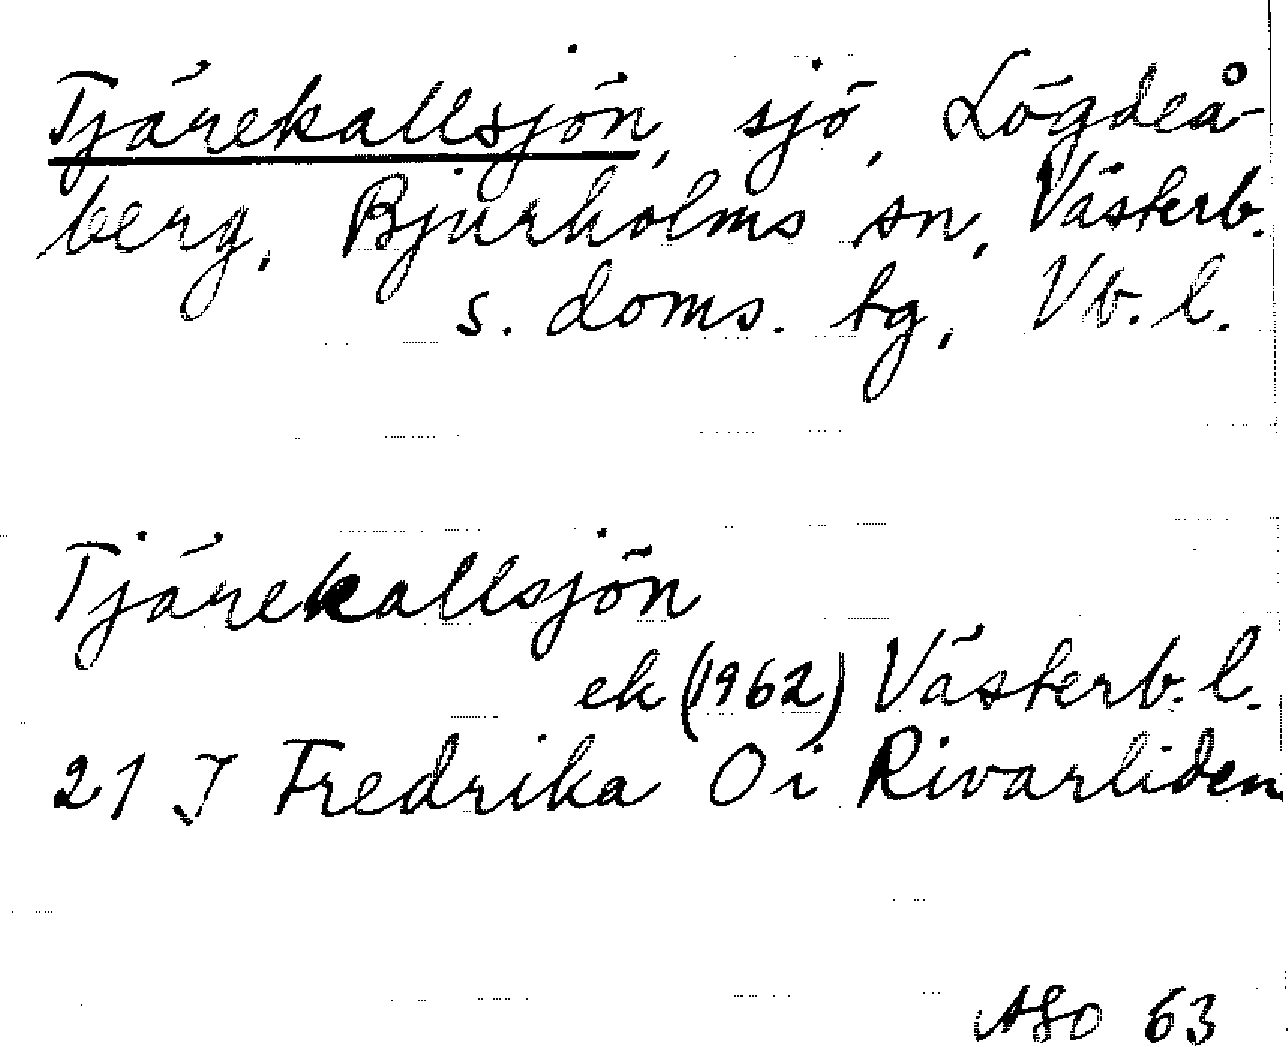 Tjärekallsjön, sjö, Lögdeå-
berg, Bjurholms sn, Västerb.
s. doms. tg, Vb. l.
Tjärekallsjön
ek (1962) Västerb. l.
21 J Fredrika Oi Rivarliden
ASO 63